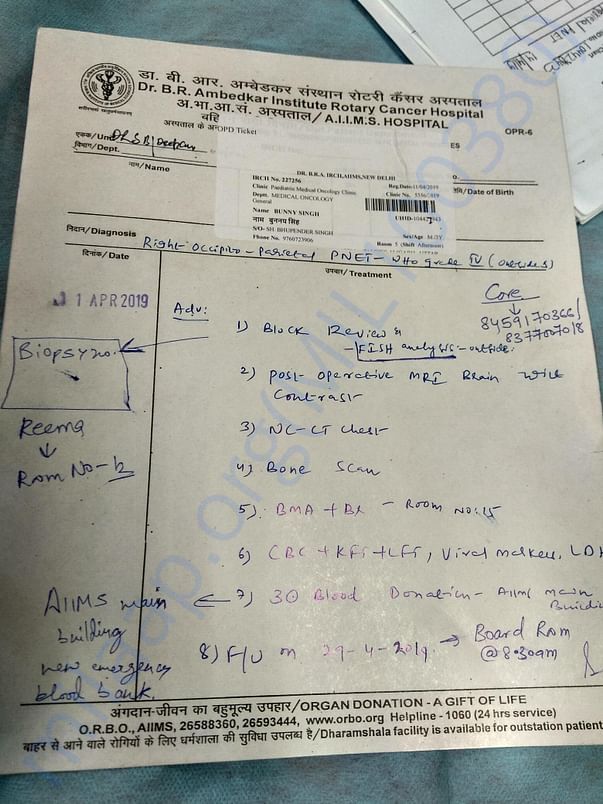 डा. बी. आर. अम्बेडकर संस्थान रोटरी कैंसर अस्पताल
Dr. B.R. Ambedkar Institute Rotary Cancer Hospital
अ.भा.आ.सं. अस्पताल/A.I.I.M.S. HOSPITAL
OPR-6
अस्पताल के अ
OPD Ticket
एकक/Unit
विभाग/Dept.
नाम/Name
/Date of Birth
DR. B.R.A. IRCH,AIIMS,NEW DELHI
IRCH No. 227256
Reg.Date:11/04/2019
Clinic Paediatric Medical Oncology Clinic
Clinic No.
Dept. MEDICAL ONCOLOGY
General
Name BUNNY SINGH
UHID-
नाम
सिंह
S/O- SH. BHUPENDER SINGH
Sex/Age
Phone No. 9760723906
Room 5 (Shift Afternoon)
निदान/Diagnosis
Right Occipito - Parietal PNET - WHO grade IV (outside)
दिनांक/Date
उपचार/Treatment
1 APR 2019
Adv:
Core
8459170366/
8377007018
Biopsy no.
1) Block Review &
- FISH analysis - outside.
2) Post-operative MRI Brain with
Contrast
3) NC-CT Chest
Reema
Room No-12
4) Bone Scan
5) BMA + Bx - Room No:15
6) CBC + KFT + LFT, Viral markers, LDH
7) 30 Blood Donation - AIIMS main
Building
AIIMS main
building
new emergency
blood bank.
8) F/U on 29-4-2019. → Board Room
@8:30am
अंगदान-जीवन का बहुमूल्य उपहार/ORGAN DONATION - A GIFT OF LIFE
O.R.B.O., AIIMS, 26588360, 26593444, www.orbo.org Helpline - 1060 (24 hrs service)
बाहर से आने वाले रोगियों के लिए धर्मशाला की सुविधा उपलब्ध है/Dharamshala facility is available for outstation patient